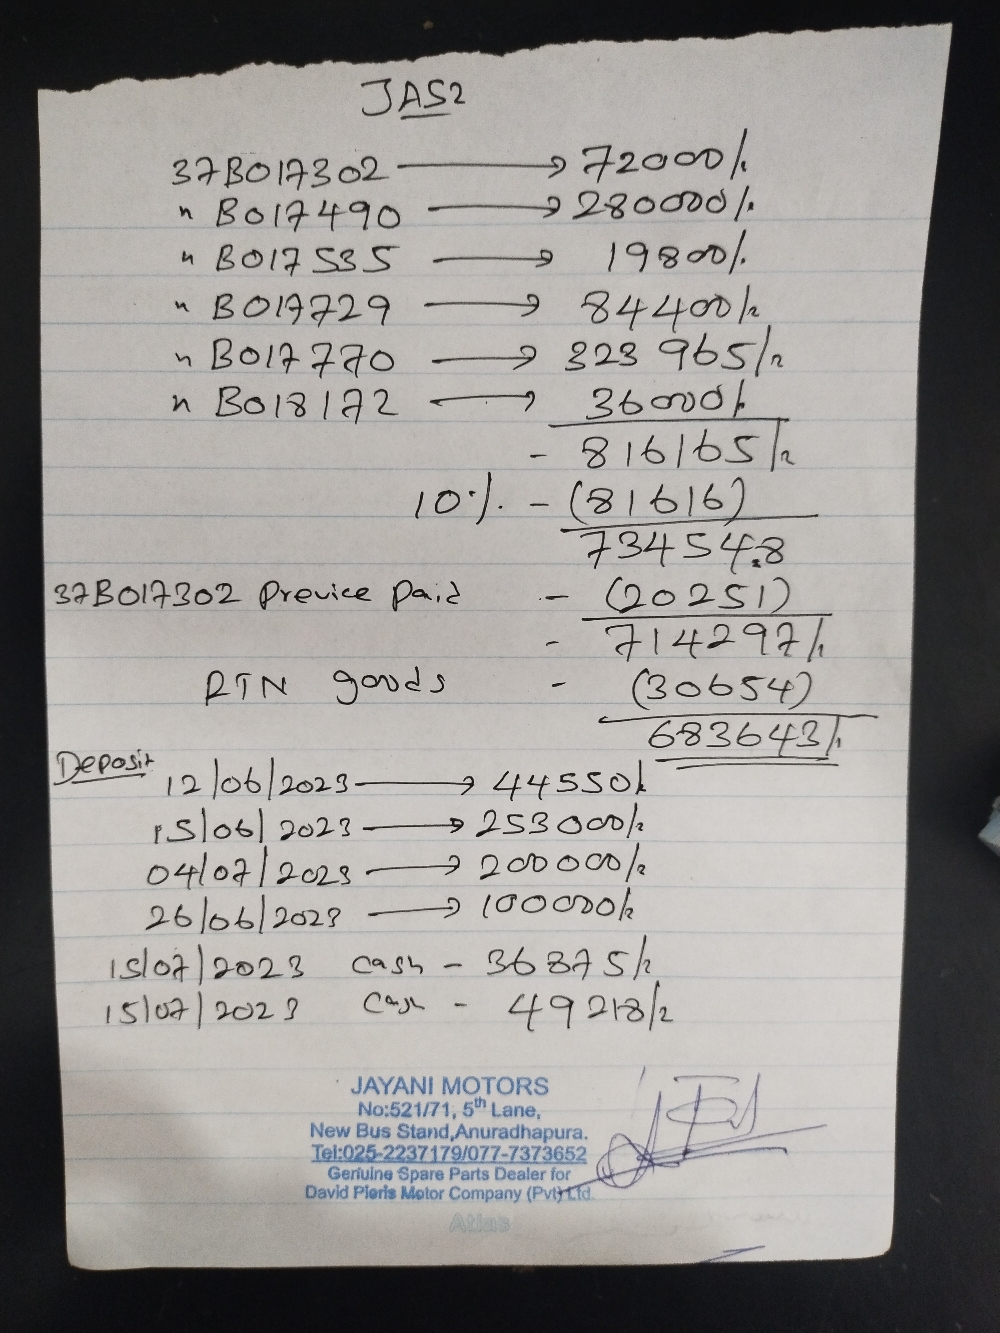 JAS2
37B017302 → 72000/.
" B017490 → 280000/.
" B017535 → 19800/.
" B017729 → 84400/=
" B017770 → 323 965/=
" B018172 → 36000/.
- 816165/=
10% - (81616)
734548
37B017302 Previce paid - (20251)
- 714297/.
RTN goods - (30654)
683643/.
Deposit
12/06/2023 → 44550/.
15/06/2023 → 253000/=
04/07/2023 → 200000/=
26/06/2023 → 100000/=
15/07/2023 cash - 36875/=
15/07/2023 cash - 49218/=
JAYANI MOTORS
No:521/71, 5th Lane,
New Bus Stand,Anuradhapura.
Tel:025-2237179/077-7373652
Genuine Spare Parts Dealer for
David Pieris Motor Company (Pvt) Ltd
Atlas